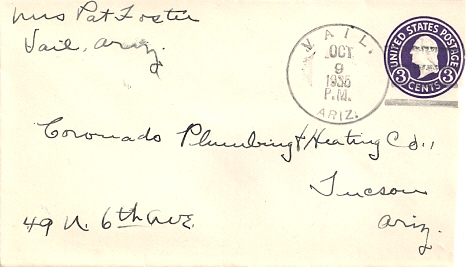 Mrs Pat Foster
Vail, Ariz.
VAIL.
OCT
9
1936
P.M.
ARIZ.
UNITED STATES POSTAGE
3 CENTS 3
Coronado Plumbing & Heating Co.,
Tucson
Ariz.
49 N. 6th Ave.